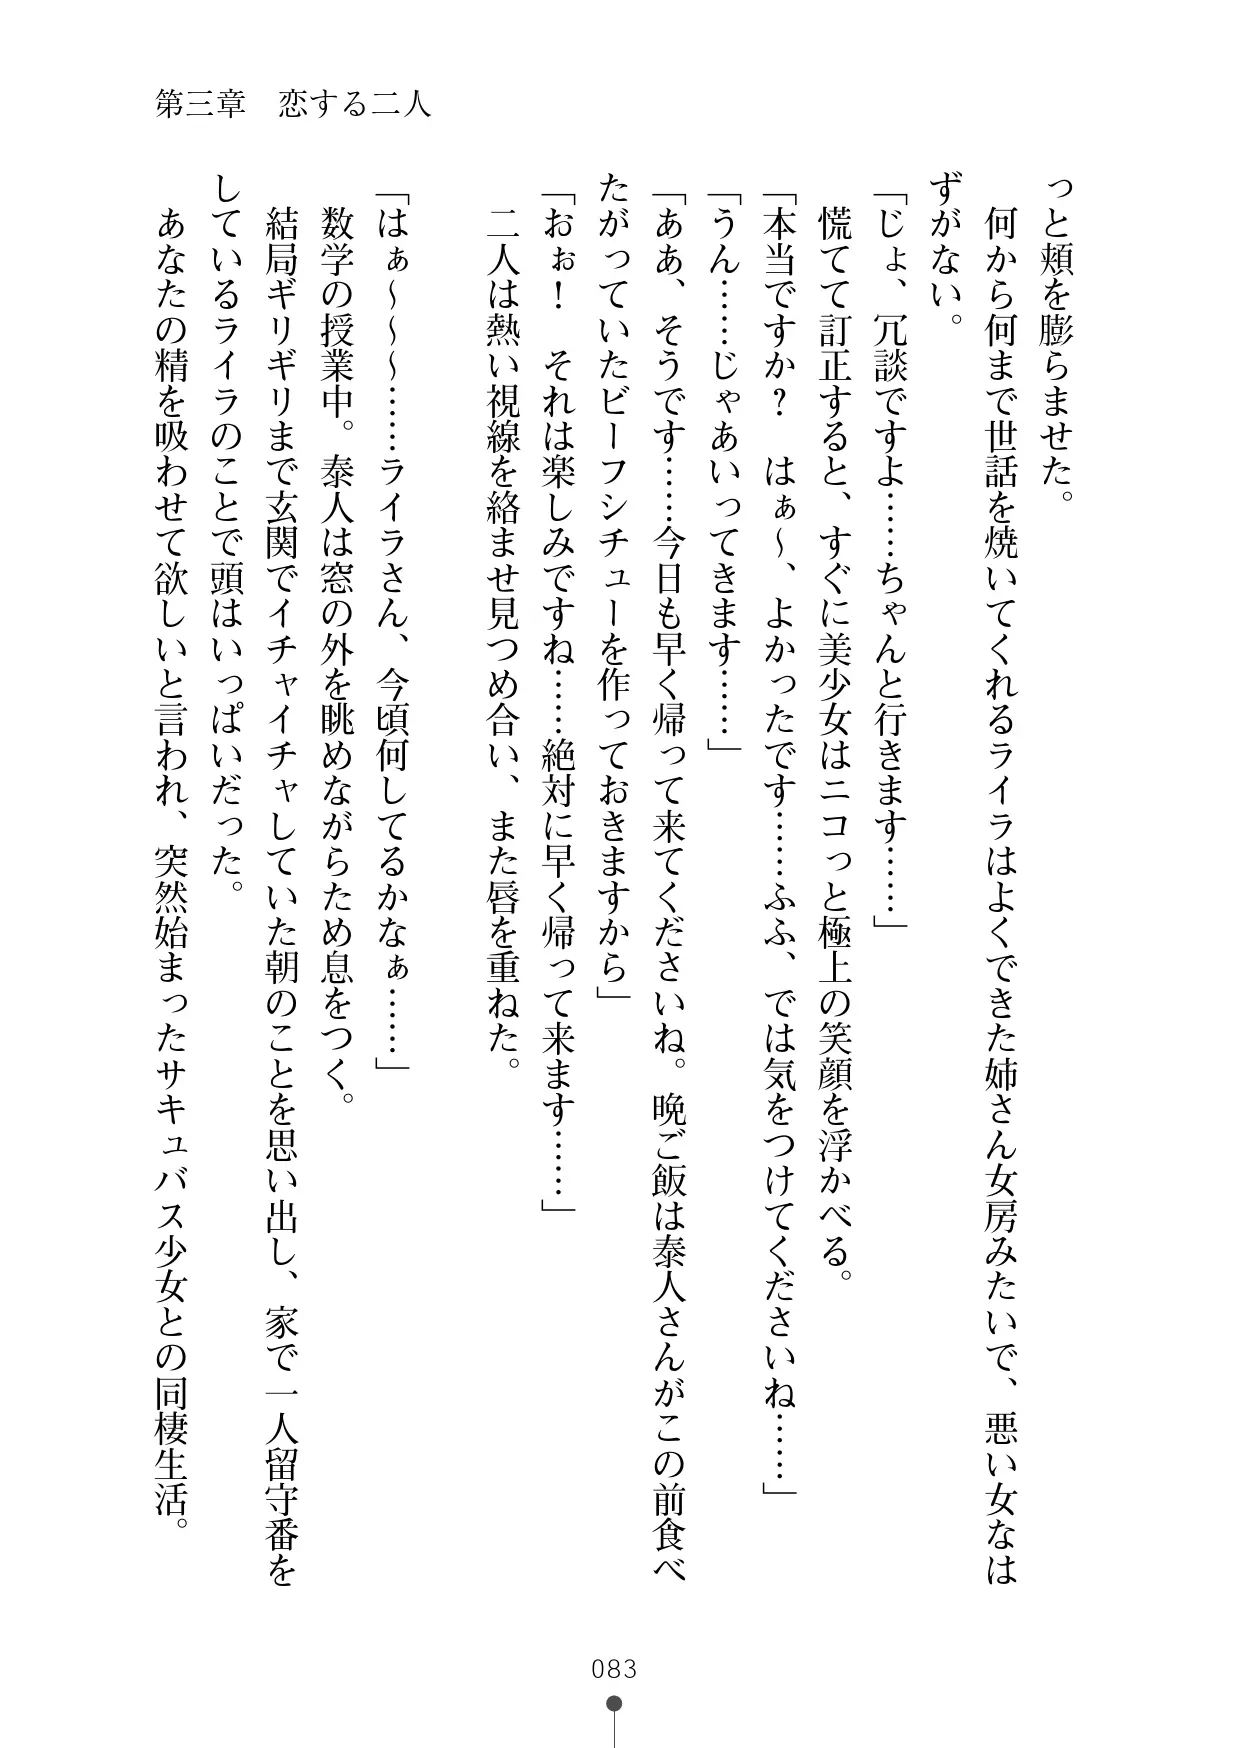 第三章　恋する二人
っと頬を膨らませた。
　何から何まで世話を焼いてくれるライラはよくできた姉さん女房みたいで、悪い女なは
ずがない。
「じょ、冗談ですよ……ちゃんと行きます……」
　慌てて訂正すると、すぐに美少女はニコっと極上の笑顔を浮かべる。
「本当ですか？　はぁ～、よかったです……ふふ、では気をつけてくださいね……」
「うん……じゃあいってきます……」
「ああ、そうです……今日も早く帰って来てくださいね。晩ご飯は泰人さんがこの前食べ
たがっていたビーフシチューを作っておきますから」
「おぉ！　それは楽しみですね……絶対に早く帰って来ます……」
　二人は熱い視線を絡ませ見つめ合い、また唇を重ねた。
「はぁ～～～……ライラさん、今頃何してるかなぁ……」
　数学の授業中。泰人は窓の外を眺めながらため息をつく。
　結局ギリギリまで玄関でイチャイチャしていた朝のことを思い出し、家で一人留守番を
しているライラのことで頭はいっぱいだった。
　あなたの精を吸わせて欲しいと言われ、突然始まったサキュバス少女との同棲生活。
083